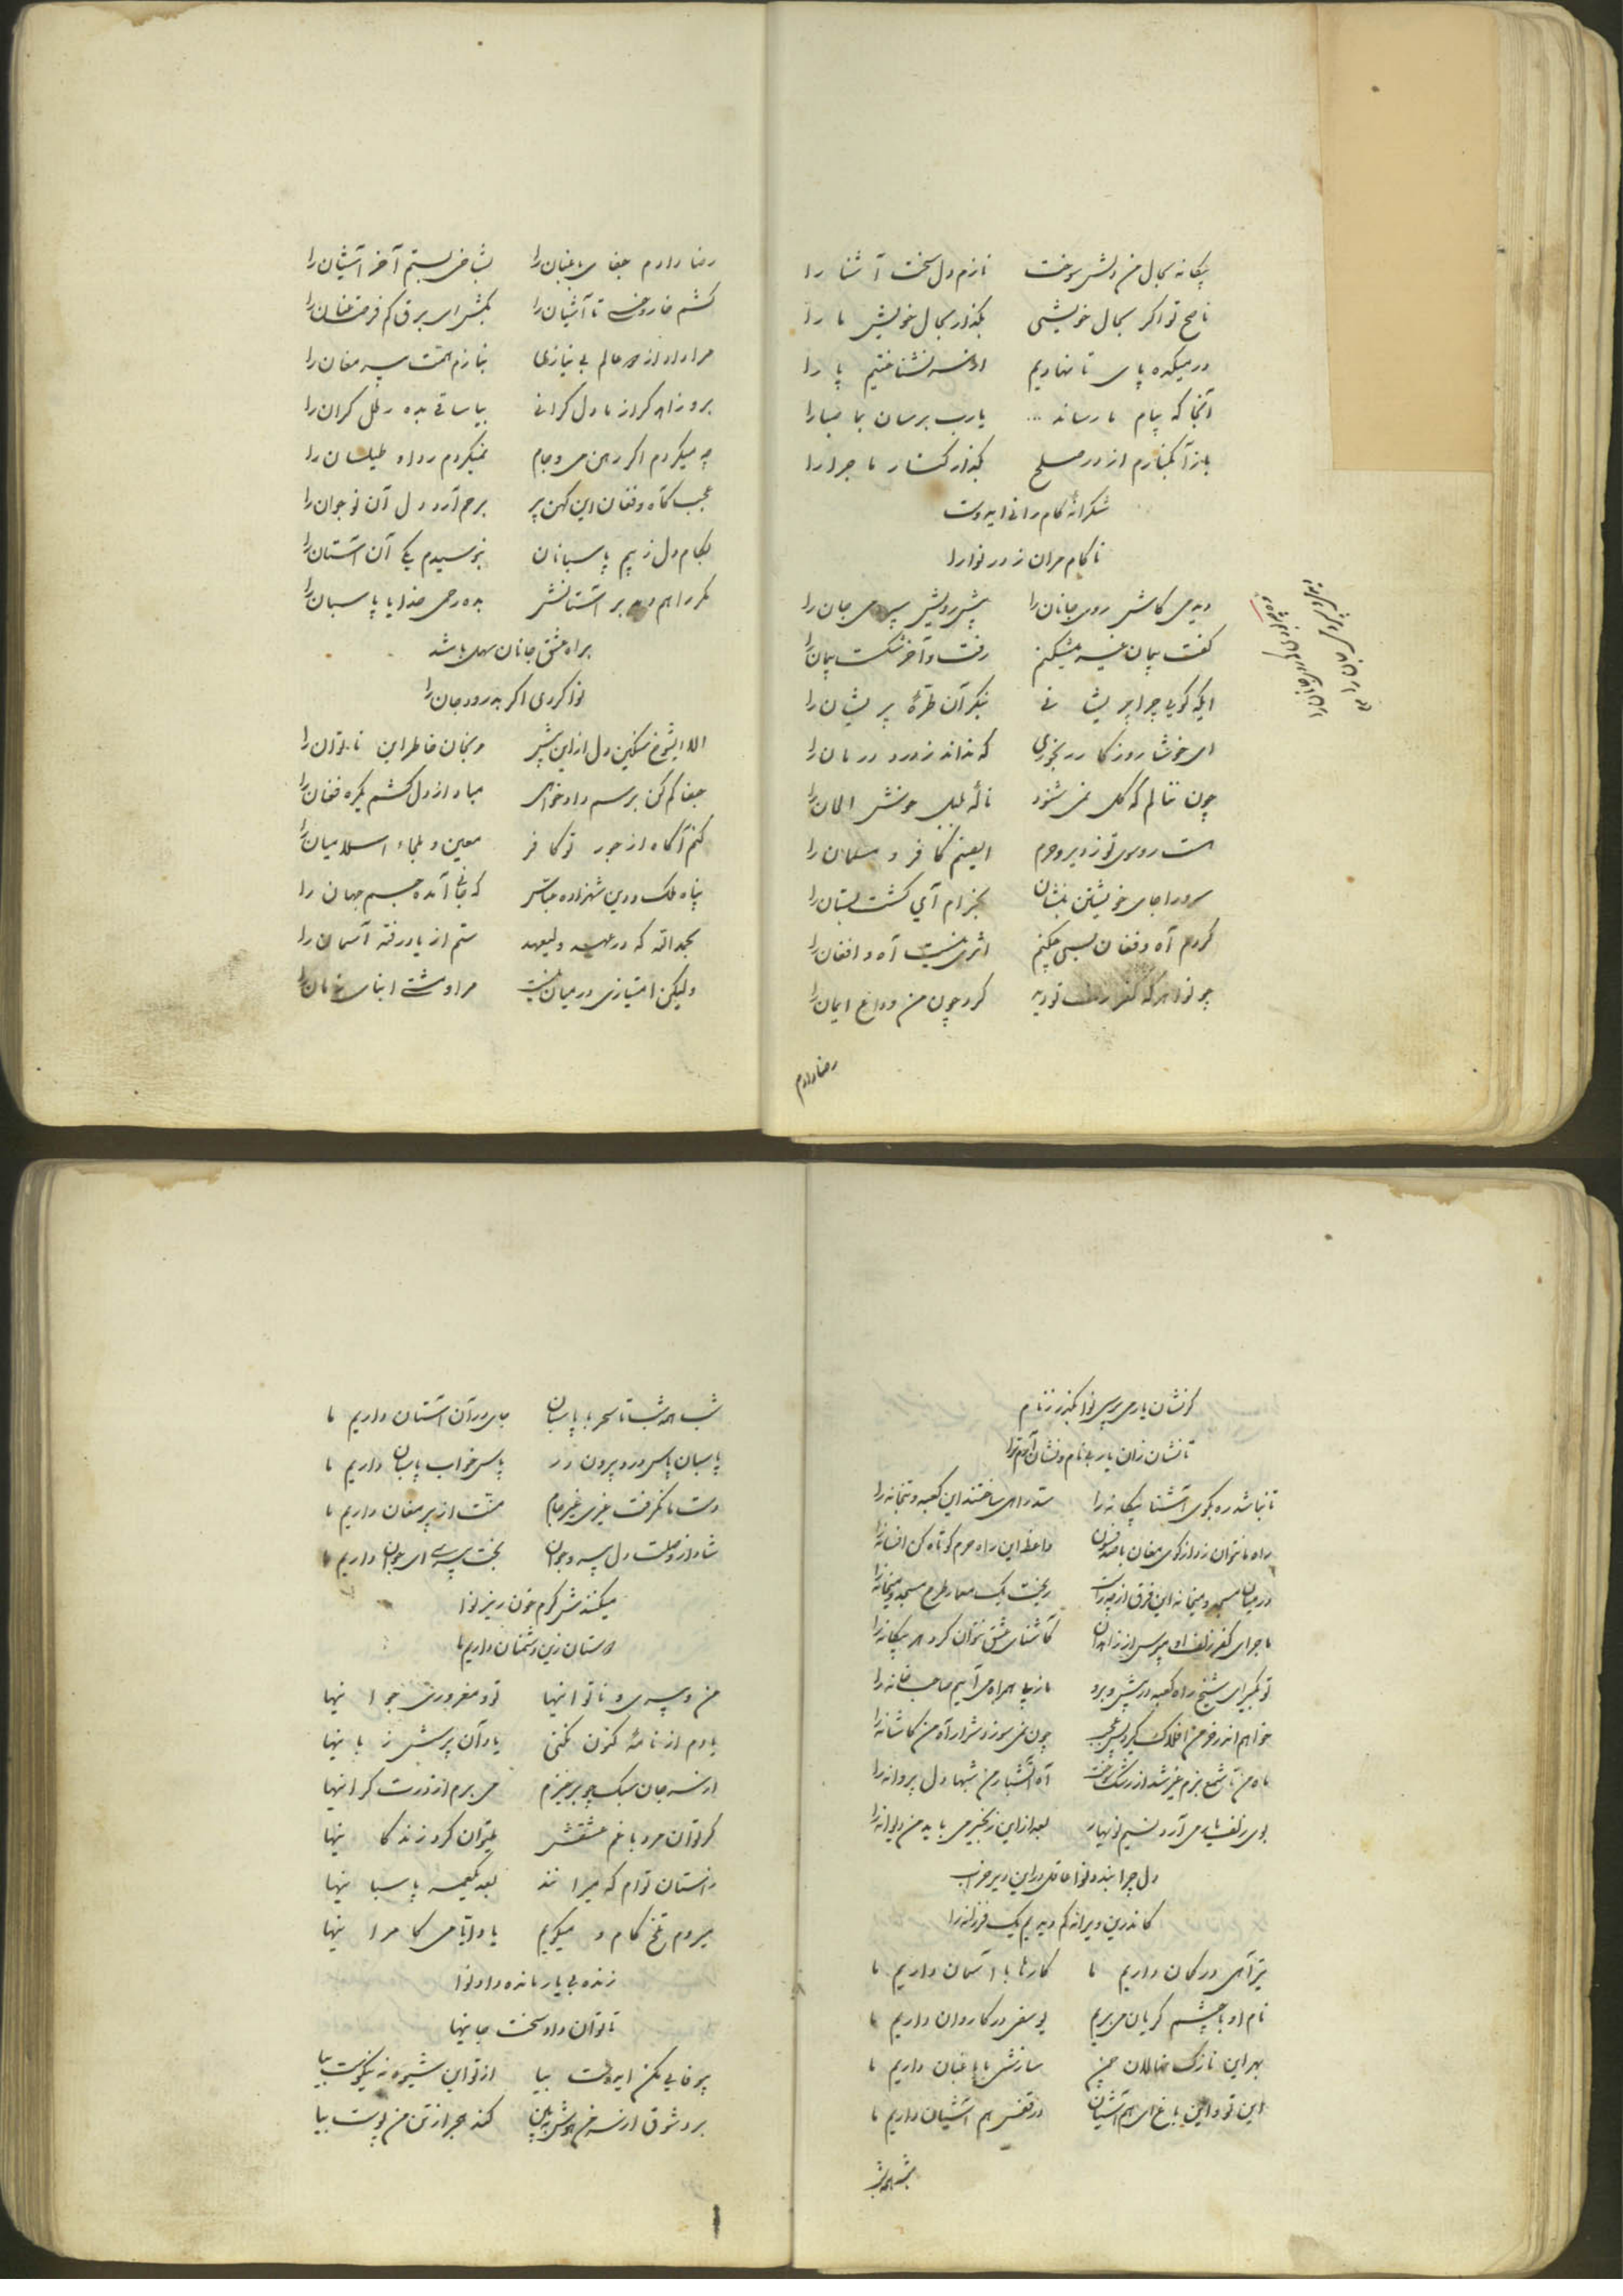 بیگانه بحال من دلش سوخت نازم دل سخت آشنا را
ناصح تو اگر بحال خویشی بگذار بحال خویش ما را
در میکده پای تا نهادیم از سر نشناختیم پا را
آنجا که پیام ما رساند یارب برسان بما صبا را
باز آ بکنارم از در صلح بگذار کنار ماجرا را
شکرانهٔ کامرانی ایدوست
ناکام مران ز در نوا را
دیدمی کاش روی جانان را پیش رویش سپردمی جان را
گفت پیمان غیر میشکنم رفت و آخر شکست پیمان را
ایکه گویی چرا پریشانی بنگر آن طرهٔ پریشان را
ای خوشا روزگار رنجوری که نداند ز درد درمان را
چون ننالم که گل نمی شنود نالهٔ بلبل خوش الحان را
هست روی تو ز دیر و حرم کافر و مسلمان را
سرو را جای خویشتن بنشان بخرام آی گشت بستان را
کردم آه و فغان بسی چکنم اثری نیست آه و افغان را
چو نوا هر که کفر زلف تو دید کرد چون من وداع ایمان را
رضا دادم
رضا دادم جفای باغبان را بشاخی بستم آخر آشیان را
کشم خار و خسی تا آشیان را بکش ای برق کم فرصت عنان را
مرا داد از همه عالم بی نیازیها بنازم همت پیر مغان را
برو زاهد گر از ما دل گرانی بیا ساقی بده رطل گران را
چه میکردم اگر رهن می و جام نمیکردم ردا و طیلسان را
عجب کآه و فغان این کهن پیر برحم آرد دل آن نوجوان را
بکام دل ز بیم پاسبانان نبوسیدم یکی آن آستان را
مگر راهم دهد بر آستانش بده رحمی خدایا پاسبان را
براه عشق جانان سهل باشد
نوا کردی اگر بدرود جان را
الا ای شوخ سنگین دل از این بیشتر مرنجان خاطر این ناتوان را
جفا کم کن بترسم دادخواهی مباد از دل کشم یکره فغان را
کنم آگاه از جور تو کافر معین و ملجاء اسلامیان را
پناه ملک و دین شهزاده عباس که جانی آمده جسم جهان را
بحمدالله که در عهد ولیعهد ستم از یاد رفته آسمان را
ولیکن امتیازی در میان نیست مرا و مشتی ابنای زمان را
گر نشان یار می پرسی نوا بگذر ز نام
تا نشان زان یار بی نام و نشان آرم ترا
تا نباشد ره بکوی آشنا بیگانه را سد راهی ساختند این کعبه و بتخانه را
راه ما نتوان زد از کوی مغان با صد فسون واعظ این راه حرم کوتاه کن افسانه را
در میان مسجد و میخانه این فرق از چه خاست ریخت یک معمار طرح مسجد و میخانه را
ماجرای کفر زلف او مپرس از زاهدان کآشنای عشق نتوان کرد هر بیگانه را
تو بگیر ای شیخ راه کعبه در پیش و برو ما ز پی همراه می آییم صاحب خانه را
خواهم اندر خرمن افلاک گیرد بس عجب چون نمی سوزد شرار آه من کاشانه را
ماه من تا شمع بزم غیر شد از رشک سوخت آه آتشبار من شبها دل پروانه را
بوی زلف یار می آرد نسیم نوبهار بعد از این زنجیر می باید من دیوانه را
دل چرا بندد نوا عاقل در این دیر خراب
کاندرین ویرانه کم دیدیم یک فرزانه را
تیر آهی در کمان داریم ما کارها با آسمان داریم ما
نام او با چشم گریان می بریم یوسفی در کاروان داریم ما
بهر این نازک نهالان چمن سازشی با باغبان داریم ما
این تو و این باغ ای هم آشیان در قفس هم آشیان داریم ما
شب همه شب
شب همه شب تا سحر با پاسبان جای در آن آستان داریم ما
پاسبان پاس در و بیرون در پاس خواب پاسبان داریم ما
دست ما نگرفت غیری غیر جام منت از پیر مغان داریم ما
شاد از وصلت دل پیر و جوان بخت پیری ای جوان داریم ما
میکنندش گرم خون ریز نوا
دوستان زین دشمنان داریم ما
من و پیری و ناتوانیها تو و مغروری جوانیها
یادم از نامهٔ کنون نکنی یاد آن پرسش زبانیها
از سر جان سبک چو برخیزم می برم از درت گرانیها
گر توان مرد با غم عشقش میتوان کرد زندگانیها
ز آستان توام که میرانند بعد یکعمر پاسبانیها
میروم تلخ کام و میگویم یاد ایام کامرانیها
زنده بی یار مانده داد نوا
ناتوان داد سخت جانیها
بیوفایی مکن ایدوست بیا از تو این شیوه نه نیکوست بیا
برد شوق از سر من هوش ببین کند هجر از تن من پوست بیا